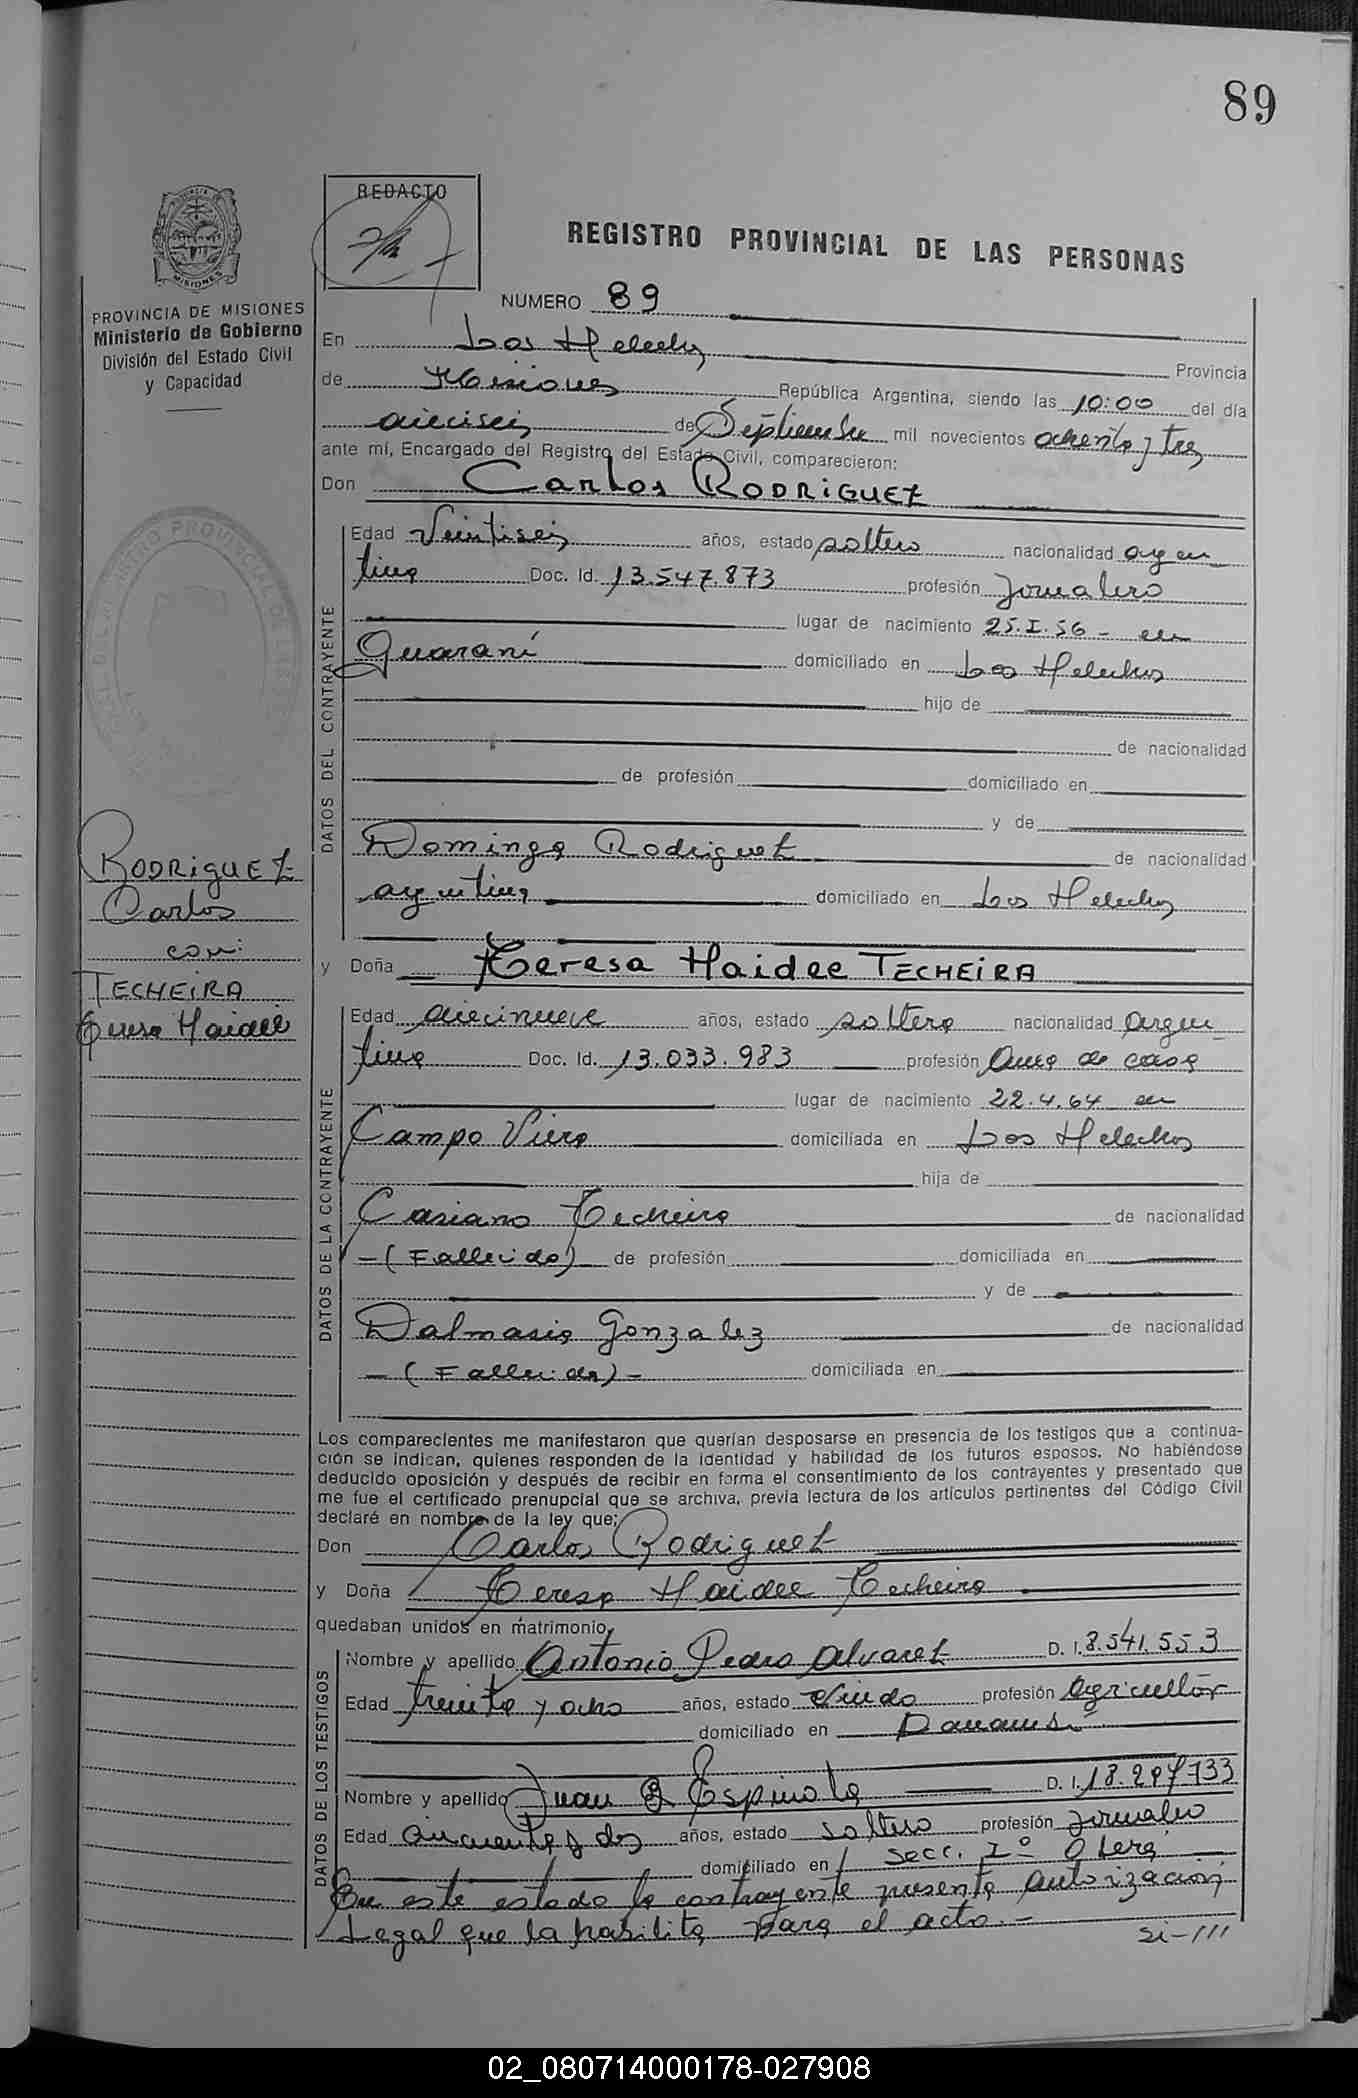 89
REDACTO
REGISTRO PROVINCIAL DE LAS PERSONAS
MISIONES
PROVINCIA DE MISIONES
Ministerio de Gobierno
División del Estado Civil
y Capacidad
NUMERO 89
En Los Helechos Provincia
de Misiones República Argentina, siendo las 10:00 del día
dieciseis de Septiembre mil novecientos ochenta y tres
ante mí, Encargado del Registro del Estado Civil, comparecieron:
Don Carlos RODRIGUEZ
DATOS DEL CONTRAYENTE
Edad Veintiseis años, estado soltero nacionalidad argen
tina Doc. Id. 13.547.873 profesión Jornalero
lugar de nacimiento 25.I.56 - en
Guaraní domiciliado en Los Helechos
hijo de
de nacionalidad
de profesión domiciliado en
y de
Dominga Rodriguez de nacionalidad
argentina domiciliado en Los Helechos
RODRIGUEZ
Carlos
con:
TECHEIRA
Teresa Haidee
y Doña Teresa Haidee TECHEIRA
DATOS DE LA CONTRAYENTE
Edad diecinueve años, estado soltera nacionalidad argen
tina Doc. Id. 13.033.983 profesión Ama de casa
lugar de nacimiento 22.4.64 en
Campo Viera domiciliada en Los Helechos
hija de
Casiano Techeira de nacionalidad
-(Fallecido) de profesión domiciliada en
y de
Dalmasia Gonzalez de nacionalidad
-(Fallecida)- domiciliada en
Los comparecientes me manifestaron que querían desposarse en presencia de los testigos que a continua-
ción se indican, quienes responden de la identidad y habilidad de los futuros esposos. No habiéndose
deducido oposición y después de recibir en forma el consentimiento de los contrayentes y presentado que
me fue el certificado prenupcial que se archiva, previa lectura de los artículos pertinentes del Código Civil
declaré en nombre de la ley que:
Don Carlos Rodriguez
y Doña Teresa Haidee Techeira
quedaban unidos en matrimonio
DATOS DE LOS TESTIGOS
Nombre y apellido Antonio Pedro Alvarez D. I. 8.541.553
Edad treinta y ocho años, estado Viudo profesión Agricultor
domiciliado en Panambí
Nombre y apellido Juan Espinola D. I. 18.297733
Edad cincuenta y dos años, estado soltero profesión Jornalero
domiciliado en secc. Oberá
En este estado la contrayente presenta autorización
Legal que la habilita para el acto.-
02_080714000178-027908